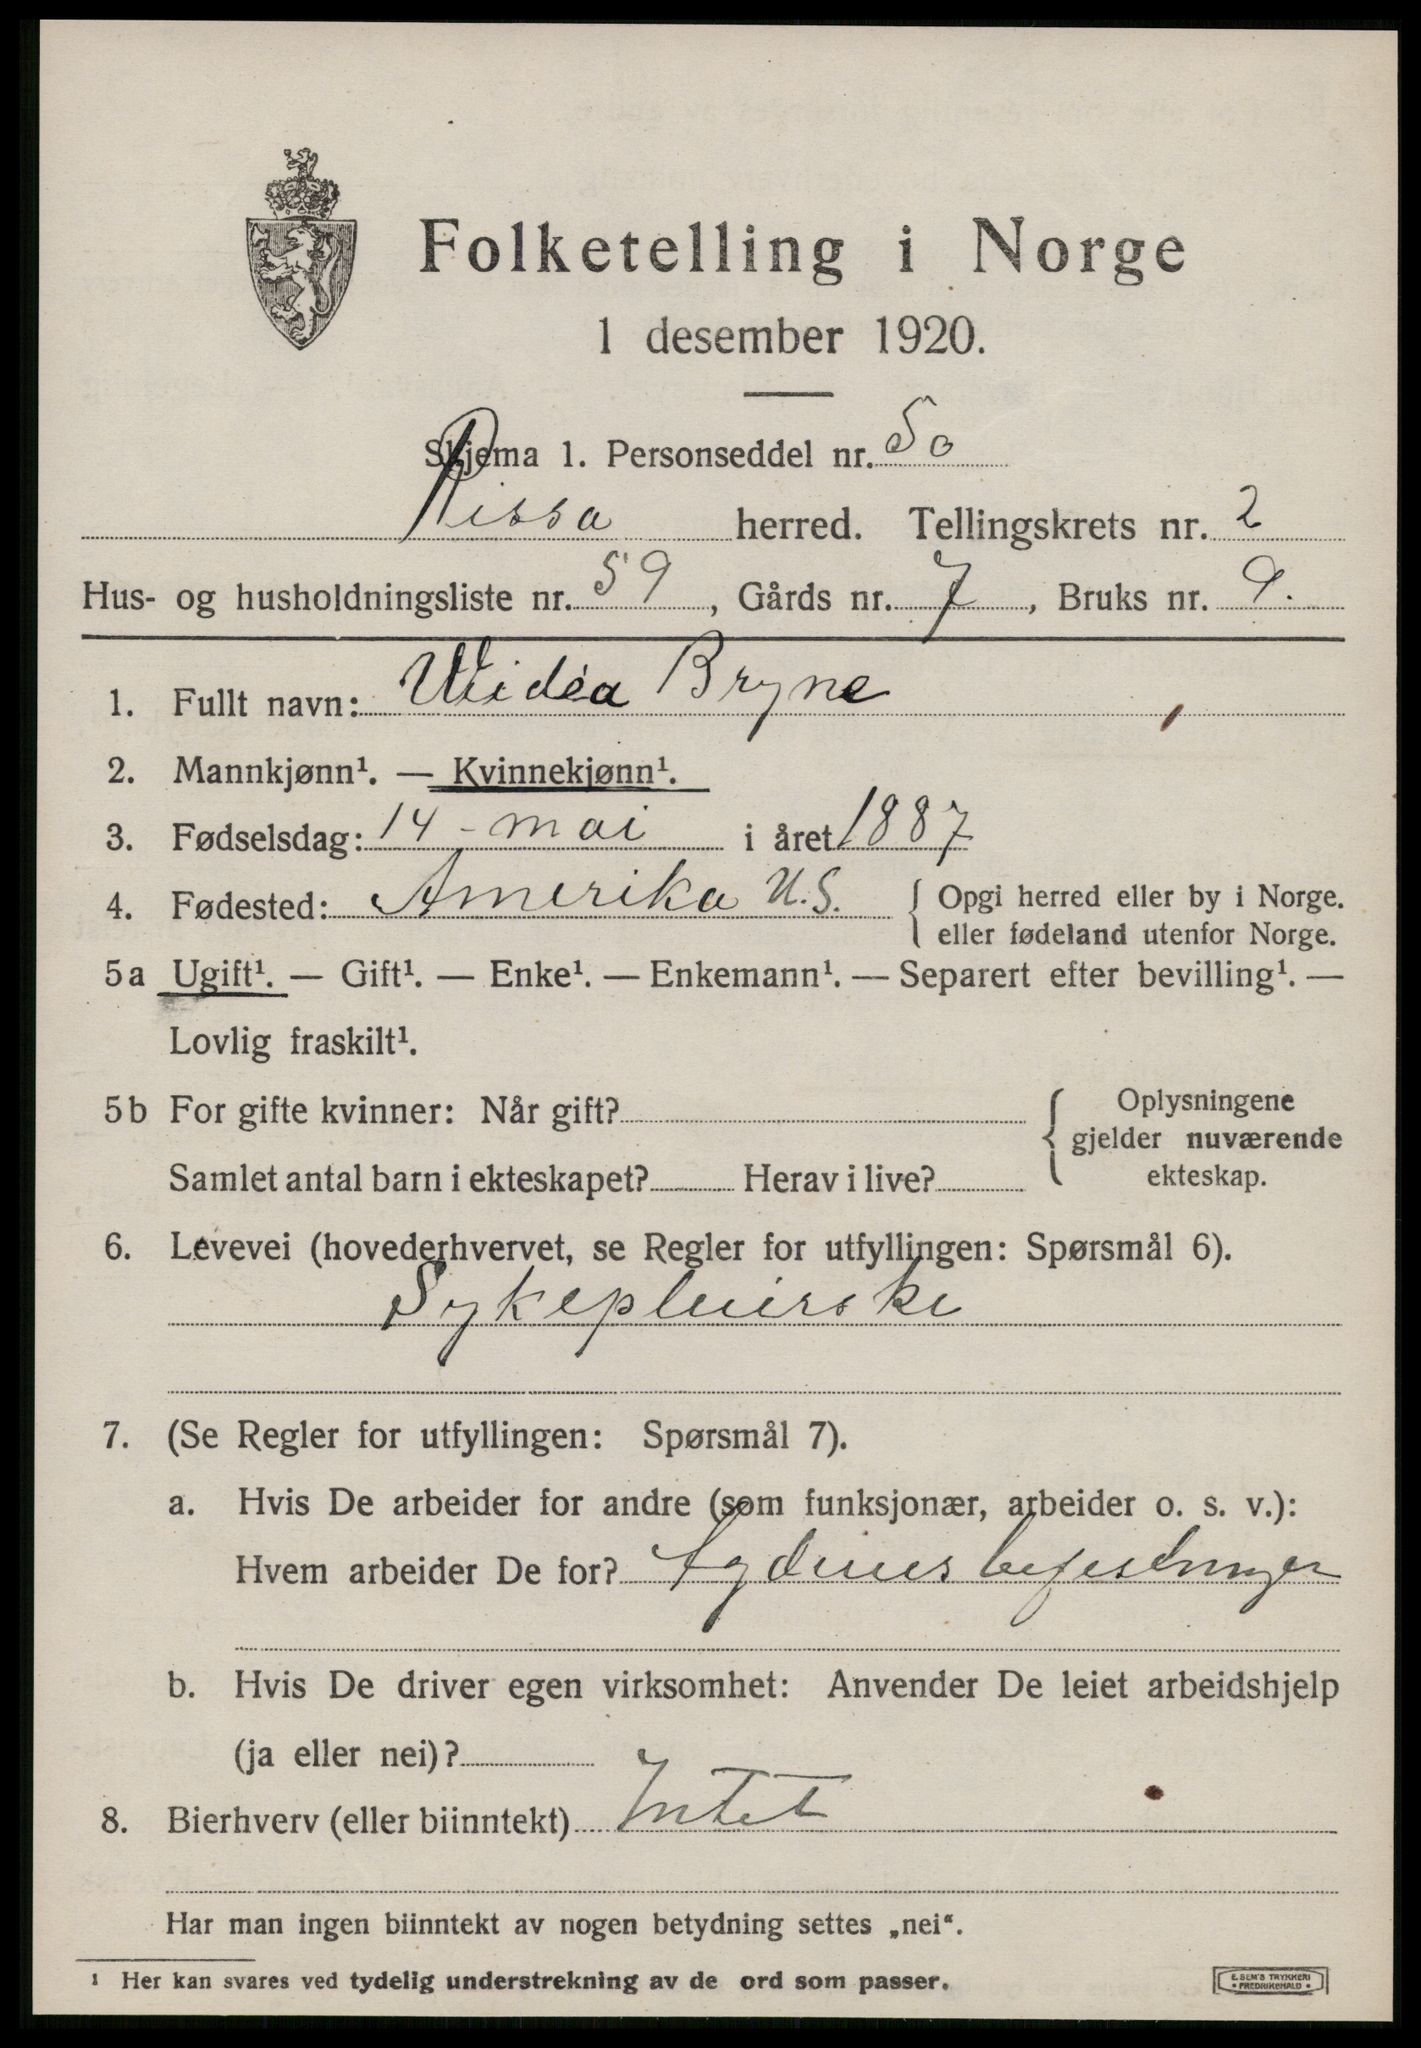 Folketelling i Norge
1 desember 1920.
Skjema 1. Personseddel nr. 50
Rissa herred. Tellingskrets nr. 2
Hus- og husholdningsliste nr. 59, Gårds nr. 7, Bruks nr. 9.
1. Fullt navn: Bryne
2. Mannkjønn¹. — Kvinnekjønn¹.
3. Fødselsdag: 14 - mai i året 1887
4. Fødested: Amerika U.S. { Opgi herred eller by i Norge.
eller fødeland utenfor Norge.
5a Ugift¹. — Gift¹. — Enke¹. — Enkemann¹. — Separert efter bevilling¹. —
Lovlig fraskilt¹.
5b For gifte kvinner: Når gift? { Oplysningene
gjelder nuværende
Samlet antal barn i ekteskapet? Herav i live? ekteskap.
6. Levevei (hovederhvervet, se Regler for utfyllingen: Spørsmål 6).
Sykepleierske
7. (Se Regler for utfyllingen: Spørsmål 7).
a. Hvis De arbeider for andre (som funksjonær, arbeider o. s. v.):
Hvem arbeider De for? Agdenes befestninger
b. Hvis De driver egen virksomhet: Anvender De leiet arbeidshjelp
(ja eller nei)?
8. Bierhverv (eller biinntekt) Intet
Har man ingen biinntekt av nogen betydning settes „nei“.
¹ Her kan svares ved tydelig understrekning av de ord som passer.
E. SEM'S TRYKKERI
• FREDRIKSHALD •